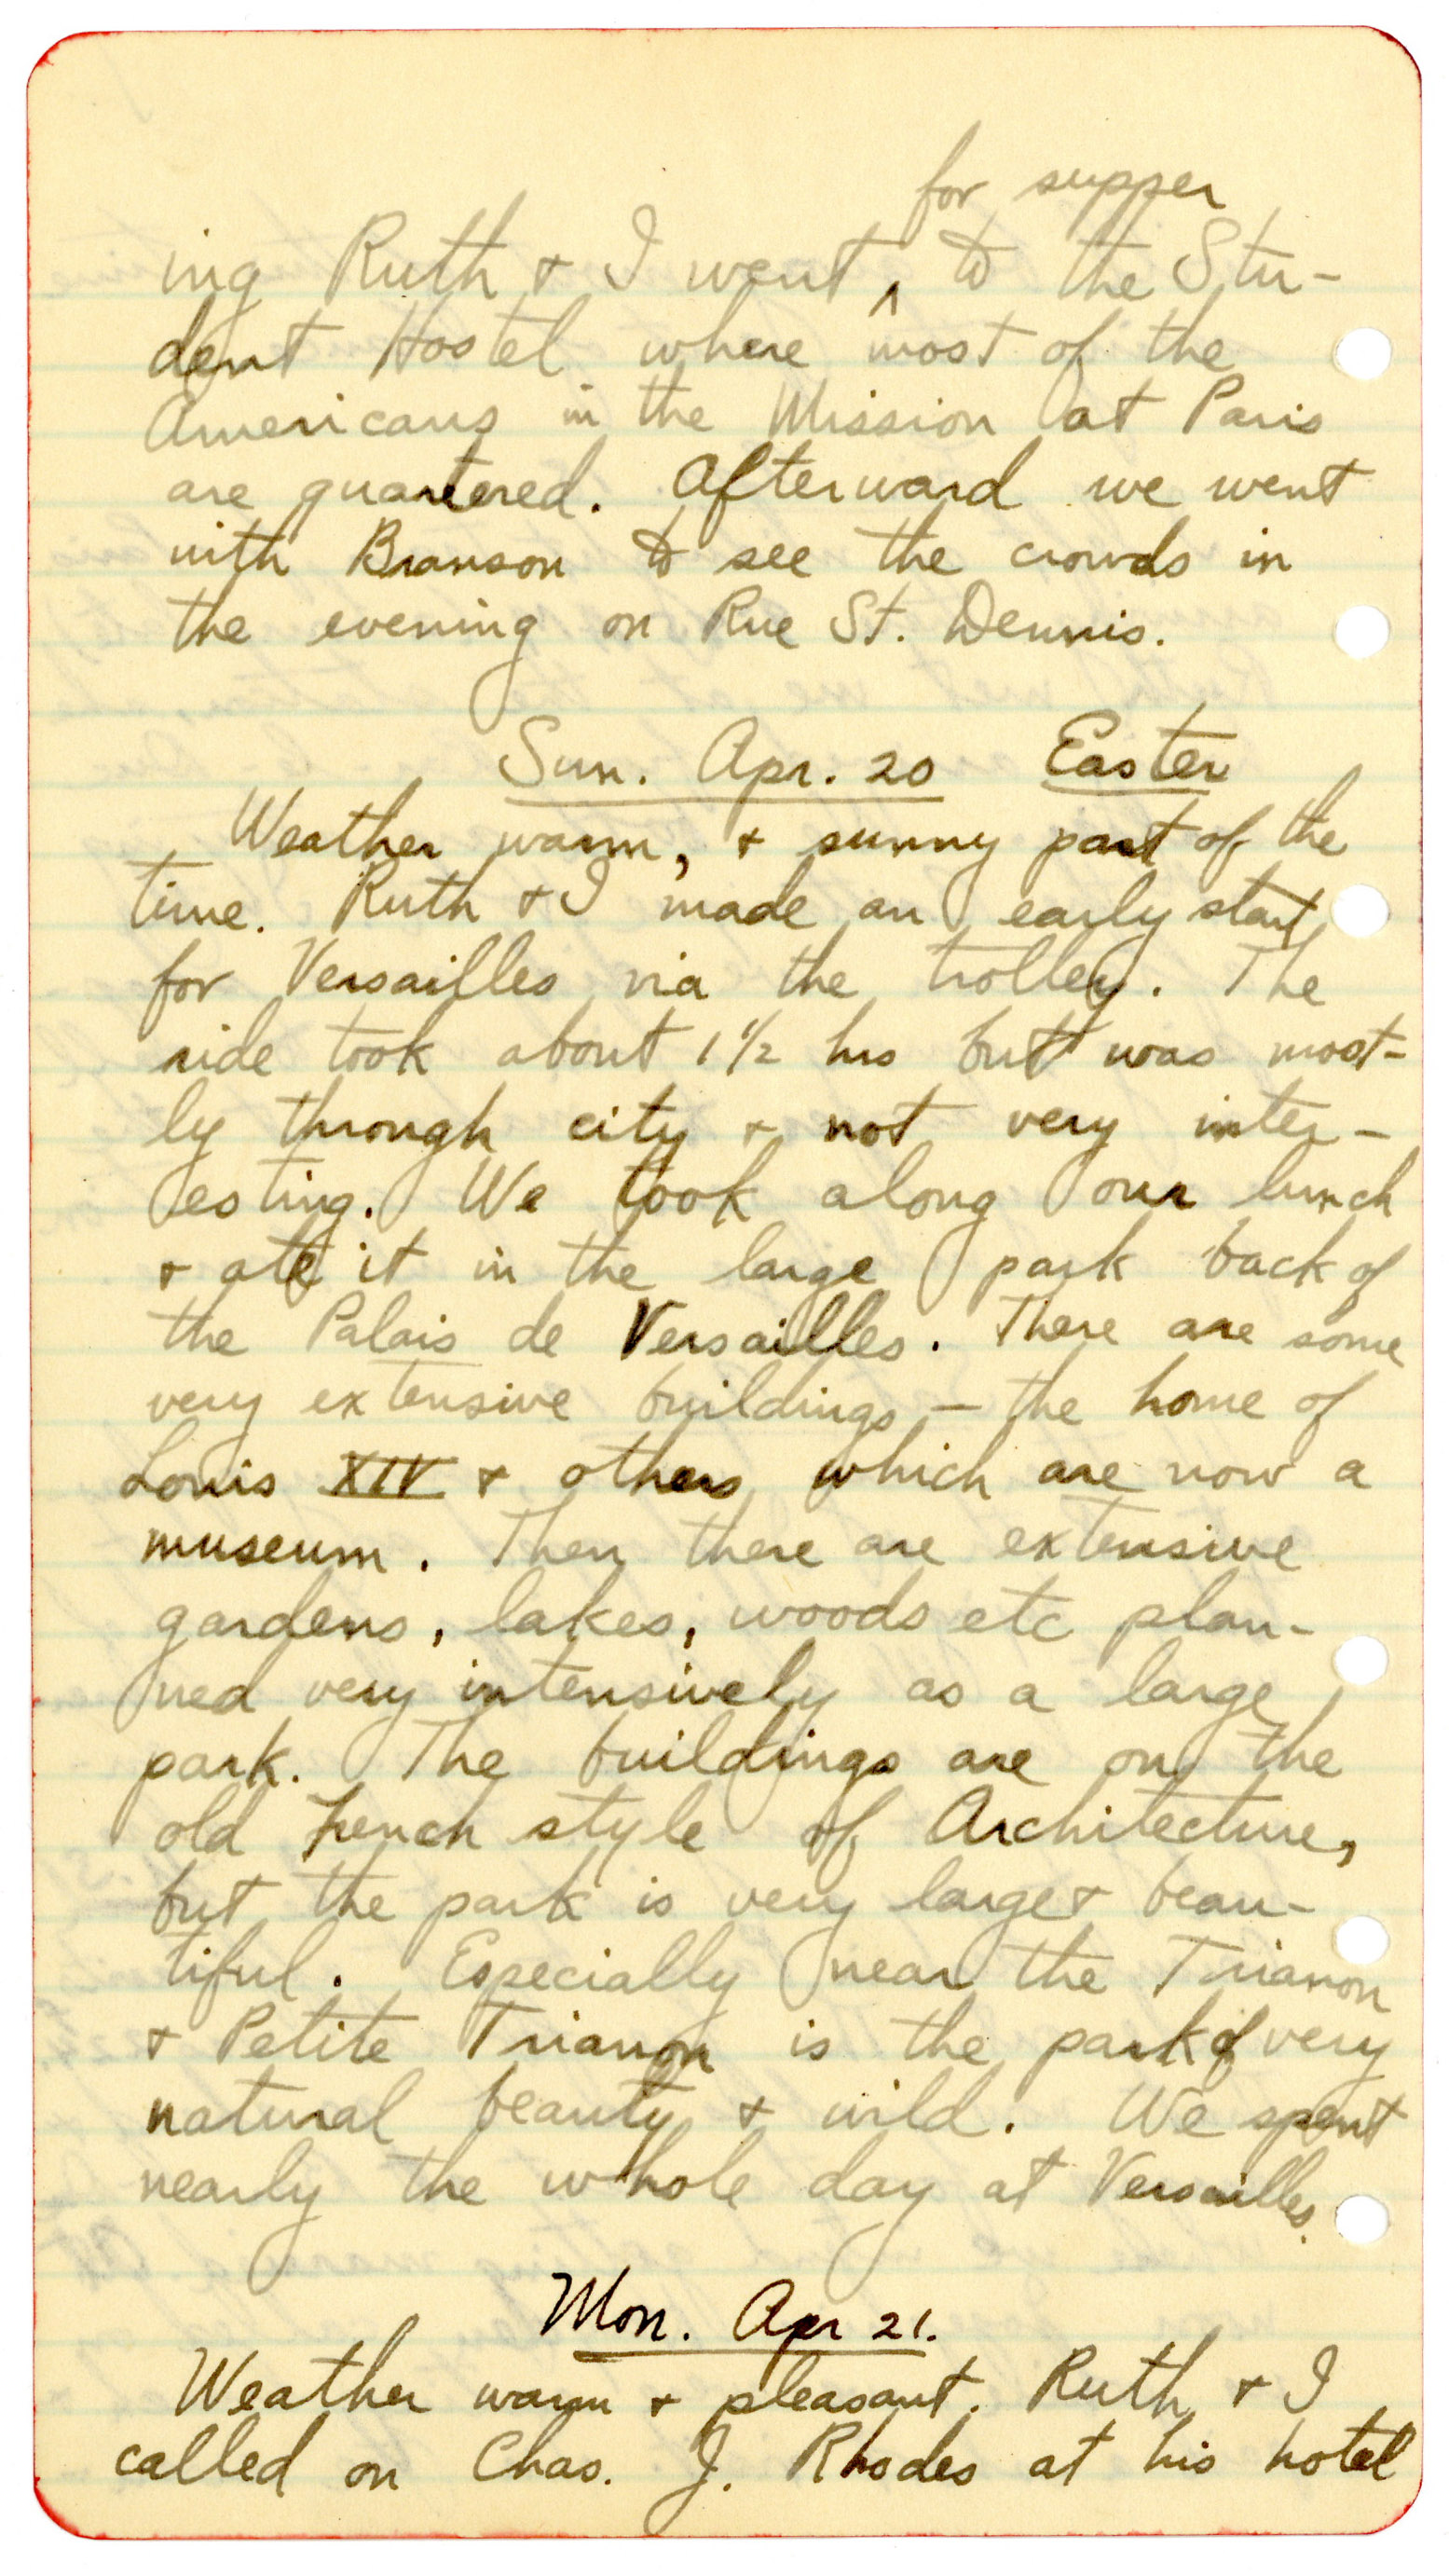 for supper
ing Ruth + I went ^ to the Stu-
dent Hostel where most of the
Americans in the Mission at Paris
are quartered. Afterward we went
with Branson to see the crowds in
the evening on Rue St. Dennis.
Sun. Apr. 20 Easter
Weather warm, + sunny part of the
time. Ruth + I made an early start
for Versailles via the trolley. The
ride took about 1 1/2 hrs but was most-
ly through city + not very inter-
esting. We took along our lunch
+ ate it in the large park back of
the Palais de Versailles. There are some
very extensive buildings - the home of
Louis XIV + others which are now a
museum. Then there are extensive
gardens, lakes, woods etc plan-
ned very intensively as a large
park. The buildings are on the
old French style of Architecture,
but the park is very large + beau-
tiful. Especially near the Trianon
+ Petite Trianon is the park of very
natural beauty + wild. We spent
nearly the whole day at Versailles.
Mon. Apr 21.
Weather warm + pleasant. Ruth + I
called on Chas. J. Rhodes at his hotel